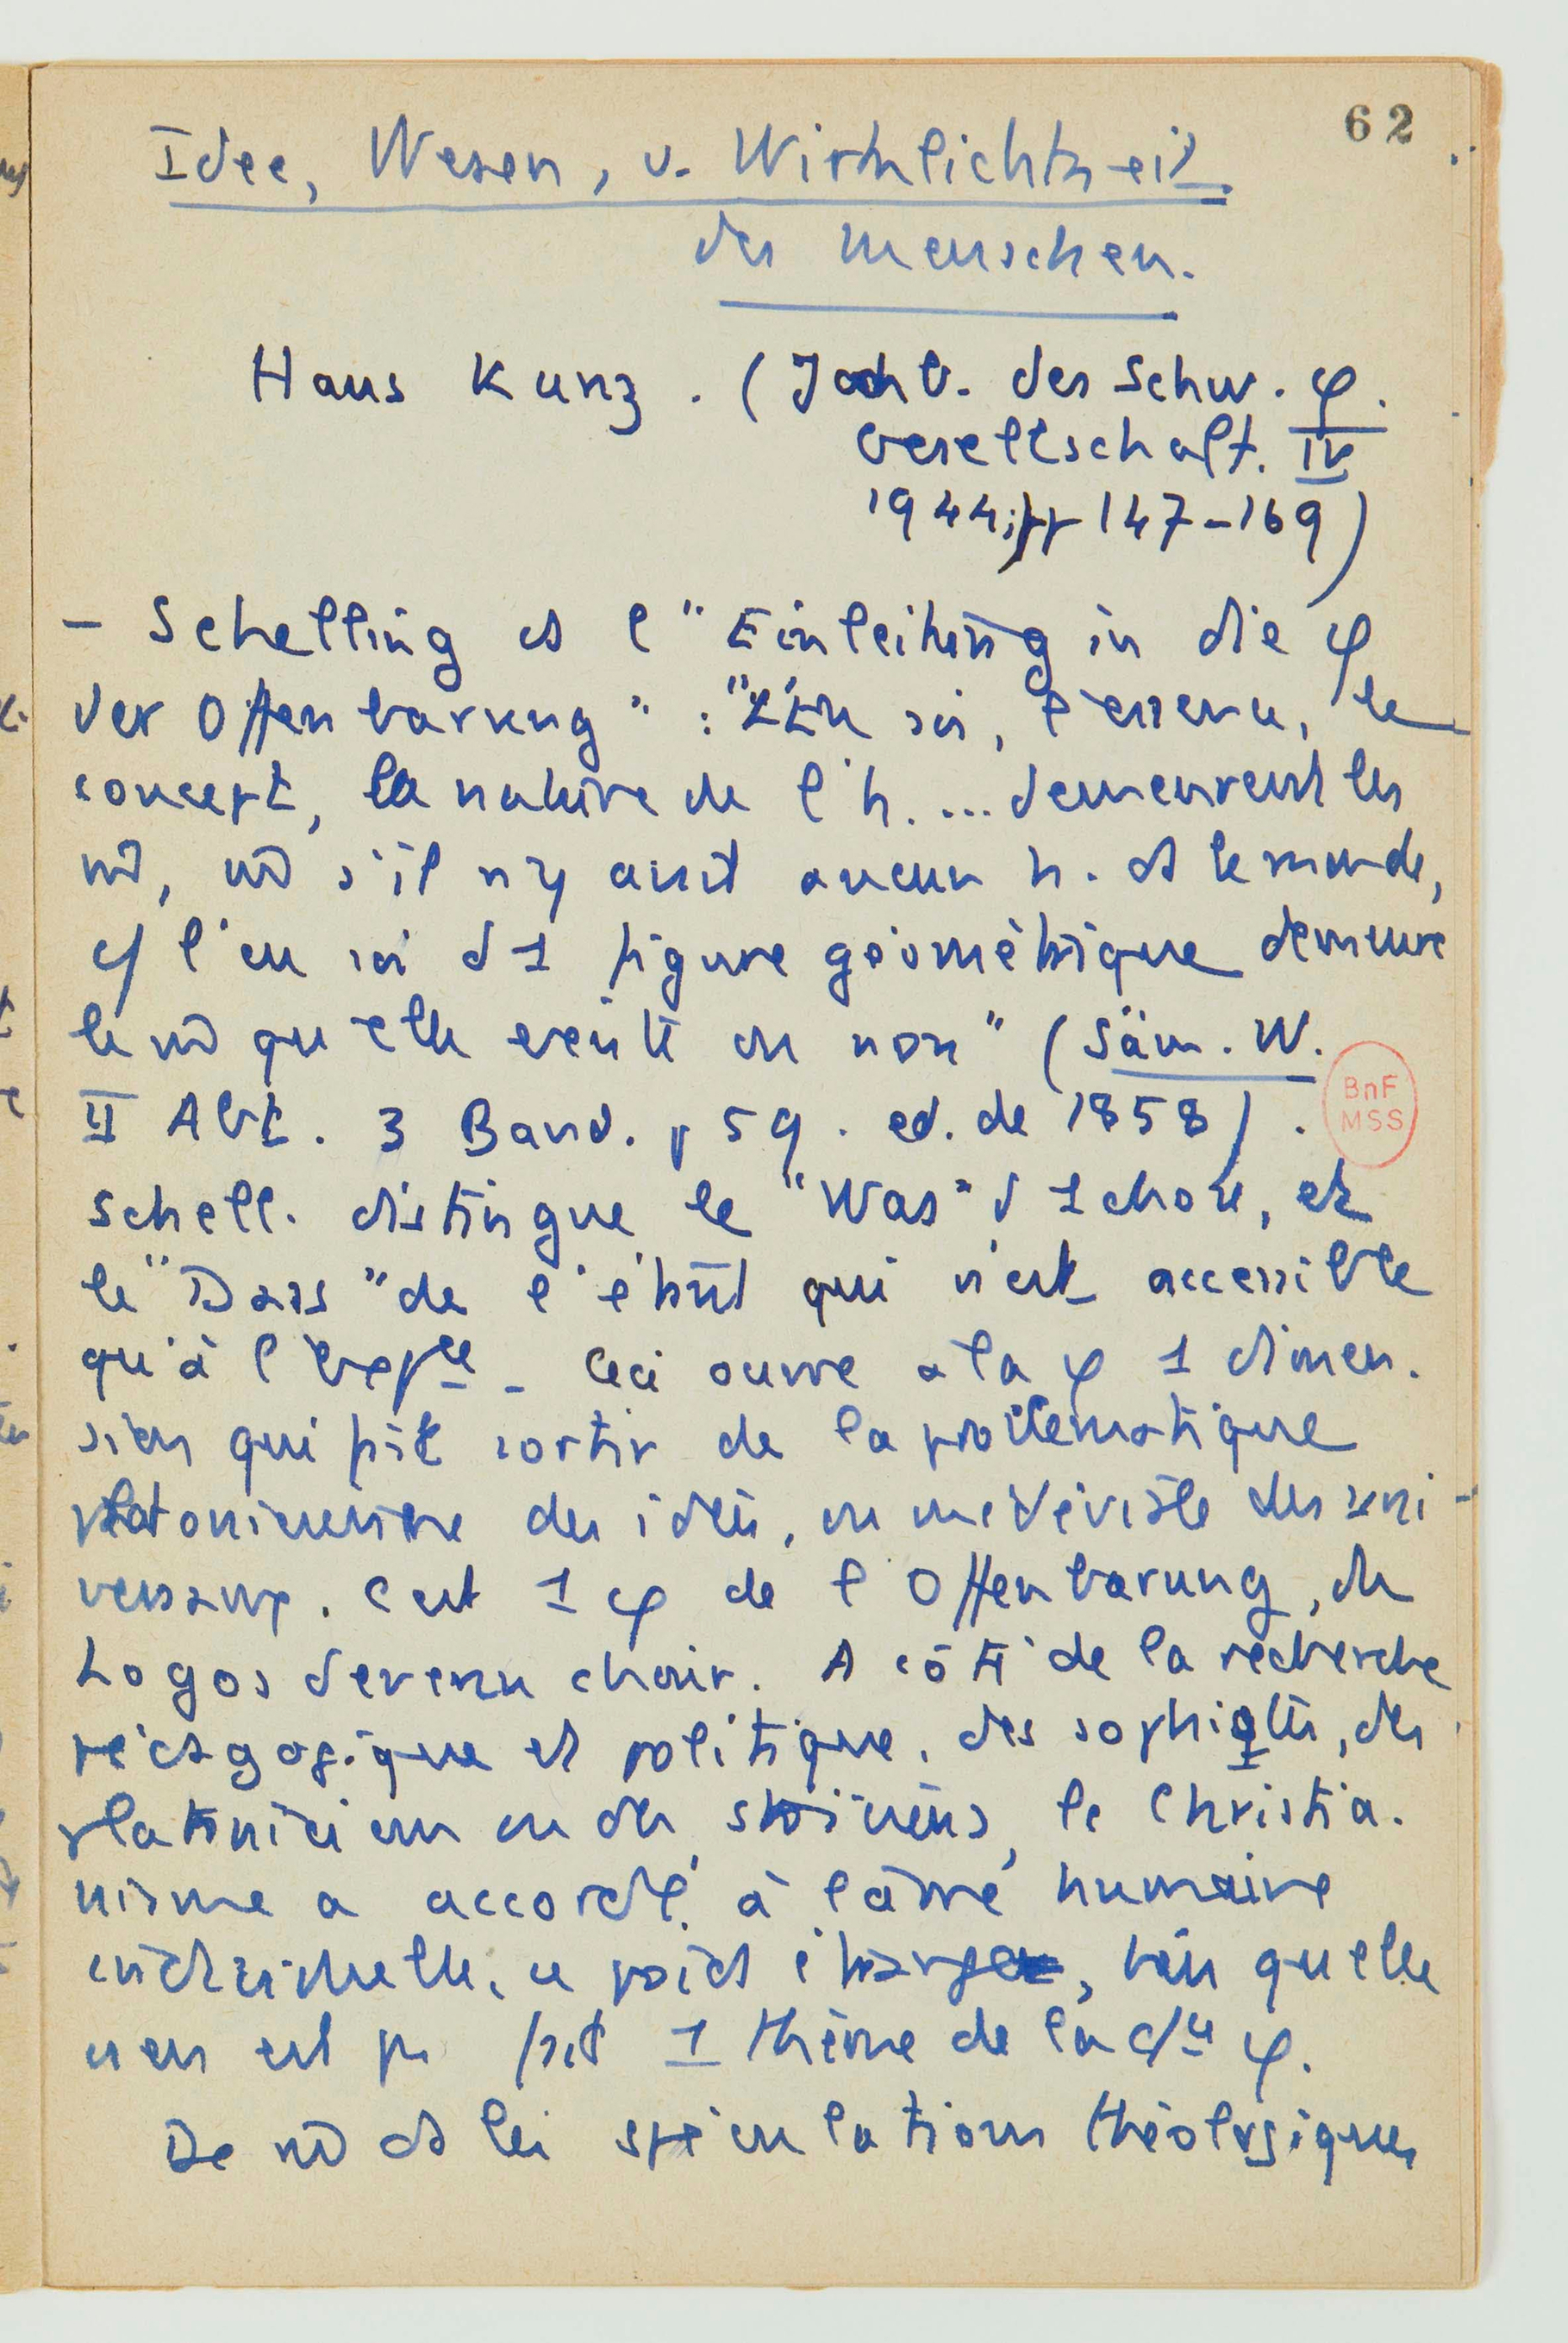 62
Idee, Wesen, u. Wirklichkeit
des Menschen.
Hans Kunz. (Jahb. der Schw. φ.
Gesellschaft. IV
1944; pp 147-169)
- Schelling ds l'"Einleitung in die φ
der Offenbarung" : "L'En soi, l'essence, le
concept, la nature de l'h. ... demeurent les
m̂, m̂ s'il n'y avait aucun h. ds le monde,
l'en soi d'1 figure géométrique demeure
le m̂ qu'elle existe ou non" (Säm. W.
II Abt. 3 Band. p 59. ed. de 1858).
BnF
MSS
Schell. distingue le "Was" d'1 chose, et
le "Dass" de l'être qui n'est accessible
qu'à l'exp^ce - Ceci ouvre à la φ 1 dimen-
sion qui fait sortir de la problématique
platonicienne des idées, ou médiévale des uni-
versaux. C'est 1 φ de l'Offenbarung, du
Logos devenu chair. A côté de la recherche
pédagogique et politique, des sophistes, des
platoniciens ou des stoïciens, le Christia-
nisme a accordé à l'âme humaine
individuelle, ce poids étrange, bien qu'elle
n'en ait pas fait 1 thème de la φ.
De m̂ ds les spéculations théologiques